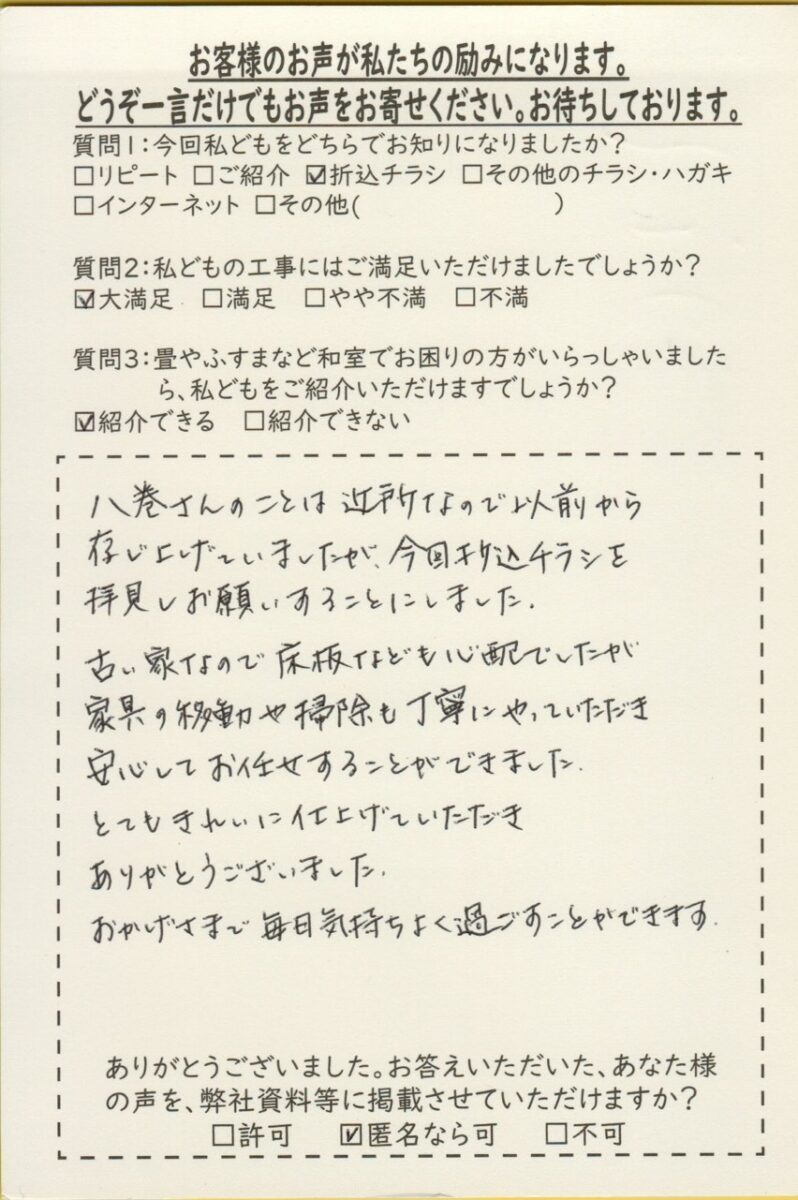 お客様のお声が私たちの励みになります。
どうぞ一言だけでもお声をお寄せください。お待ちしております。
質問1:今回私どもをどちらでお知りになりましたか?
□リピート □ご紹介 ☑折込チラシ □その他のチラシ・ハガキ
□インターネット □その他( )
質問2:私どもの工事にはご満足いただけましたでしょうか?
☑大満足 □満足 □やや不満 □不満
質問3:畳やふすまなど和室でお困りの方がいらっしゃいました
ら、私どもをご紹介いただけますでしょうか?
☑紹介できる □紹介できない
八巻さんのことは近所なので以前から
存じ上げていましたが、今回折込チラシを
拝見しお願いすることにしました.
古い家なので床板なども心配でしたが
家具の移動や掃除も丁寧にやっていただき
安心してお任せすることができました.
とてもきれいに仕上げていただき
ありがとうございました.
おかげさまで毎日気持ちよく過ごすことができます.
ありがとうございました。お答えいただいた、あなた様
の声を、弊社資料等に掲載させていただけますか?
□許可 ☑匿名なら可 □不可